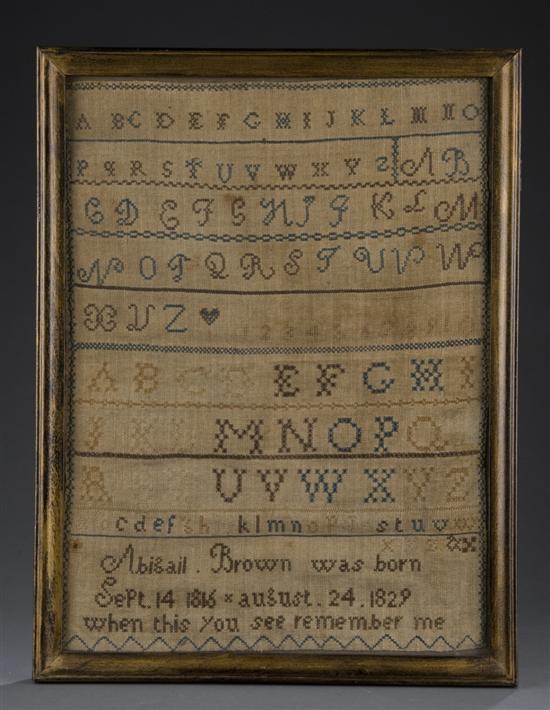 A B C D E F G H I J K L M N O
P Q R S T U V W X Y Z A B
C D E F G H I J K L M
N O P Q R S T U V W
X Y Z ♥ 1 2 3 4 5 6 7 8 9 10
A B C D E F G H I
J K L M N O P Q
R U V W X Y Z
c d e f g h k l m n o p s t u v w
x y z &
Abigail . Brown was born
Sept. 14 1816 × august . 24 . 1829
when this you see remember me